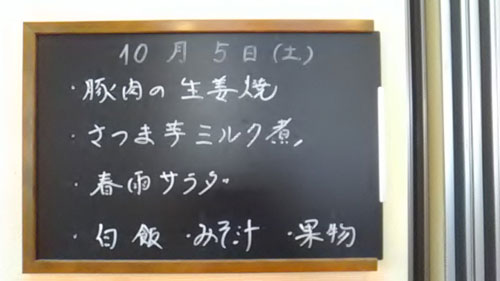 10月5日(土)
・豚肉の生姜焼
・さつま芋ミルク煮
・春雨サラダ
・白飯 ・みそ汁 ・果物